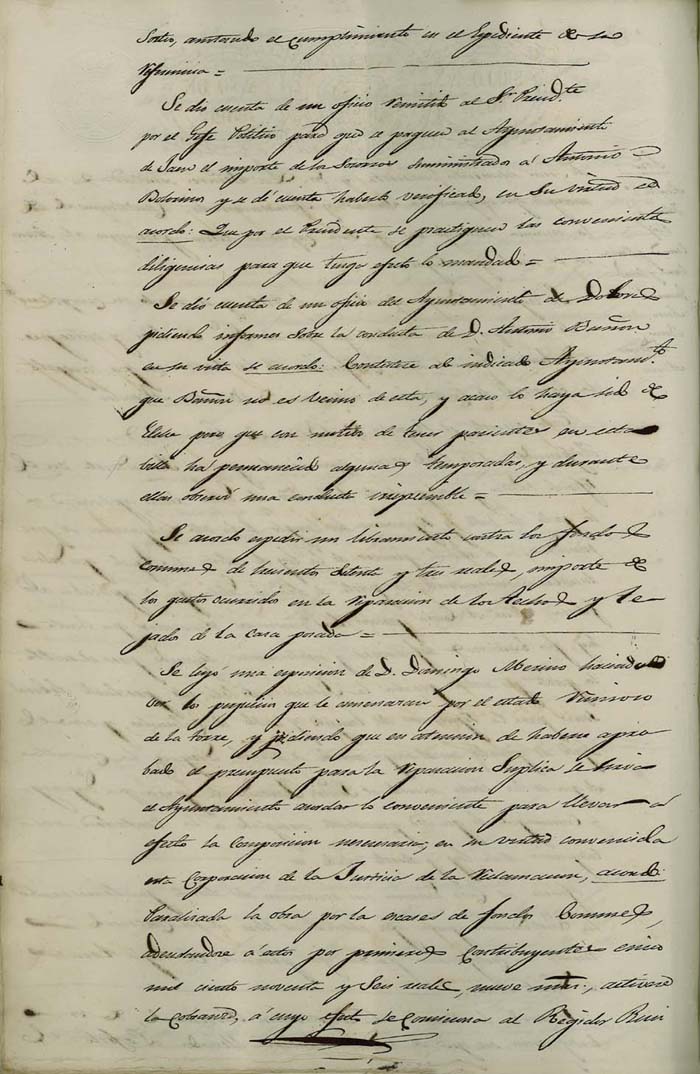 Sorteo, anotando el cumplimiento en el Espediente de su
referencia =
Se dió cuenta de un oficio remitido al Sr. Presid.te
por el Gefe Politico para que se paguen al Ayuntamiento
de Jaen el importe de los Socorros suministrados á Antonio
y se dé cuenta haberlo verificado, en su virtud se
acordo: Que por el Presidente se practiquen las convenientes
diligencias para que tenga efecto lo mandado =
Se dió cuenta de un oficio del Ayuntamiento de Dolores
pidiendo informes sobre la conducta de D. Antonio Buñon
en su vista se acordo: Contestar al indicado Ayuntam.to
que no es vecino de esta, y acaso lo haya sido de
Elche pero que con motivo de tener parientes en esta
Villa ha permanecido algunas temporadas, y durante
ellas observó una conducta irreprensible =
Se acordo espedir un libramiento contra los fondos
Comunes de trescientos setenta y tres reales, importe de
los gastos ocurridos en la reparacion de los techos y te-
jados de la casa posada =
Se leyó una esposicion de D. Domingo Merino haciendo
ver los perjuicios que le amenazan por el estado ruinoso
de la torre, y pidiendo que en atencion de haberse apro-
bado el presupuesto para la reparacion Suplica se sirva
el Ayuntamiento acordar lo conveniente para llevar á
efecto la composicion necesaria; en su virtud convencida
esta Corporacion de la Justicia de la reclamacion, acordo:
Paralizada la obra por la escases de fondos Comunes,
adeudandose á estos por primeros Contribuyentes cinco
mil ciento noventa y seis reales, nueve mrs., activese
la cobranza, á cuyo efecto se comisiona al Regidor Ruiz